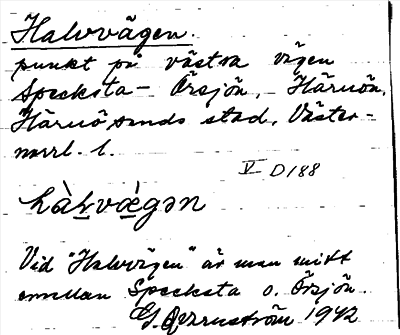 Halvvägen.
punkt på västra vägen
Specksta - Örsjön, Härnön,
Härnösands stad, Väster-
norrl. l.
V D188
hàl̠væ̠̀gən
Vid "Halvvägen" är man mitt
emellan Specksta o. Örsjön.
G. Qvarnström 1942